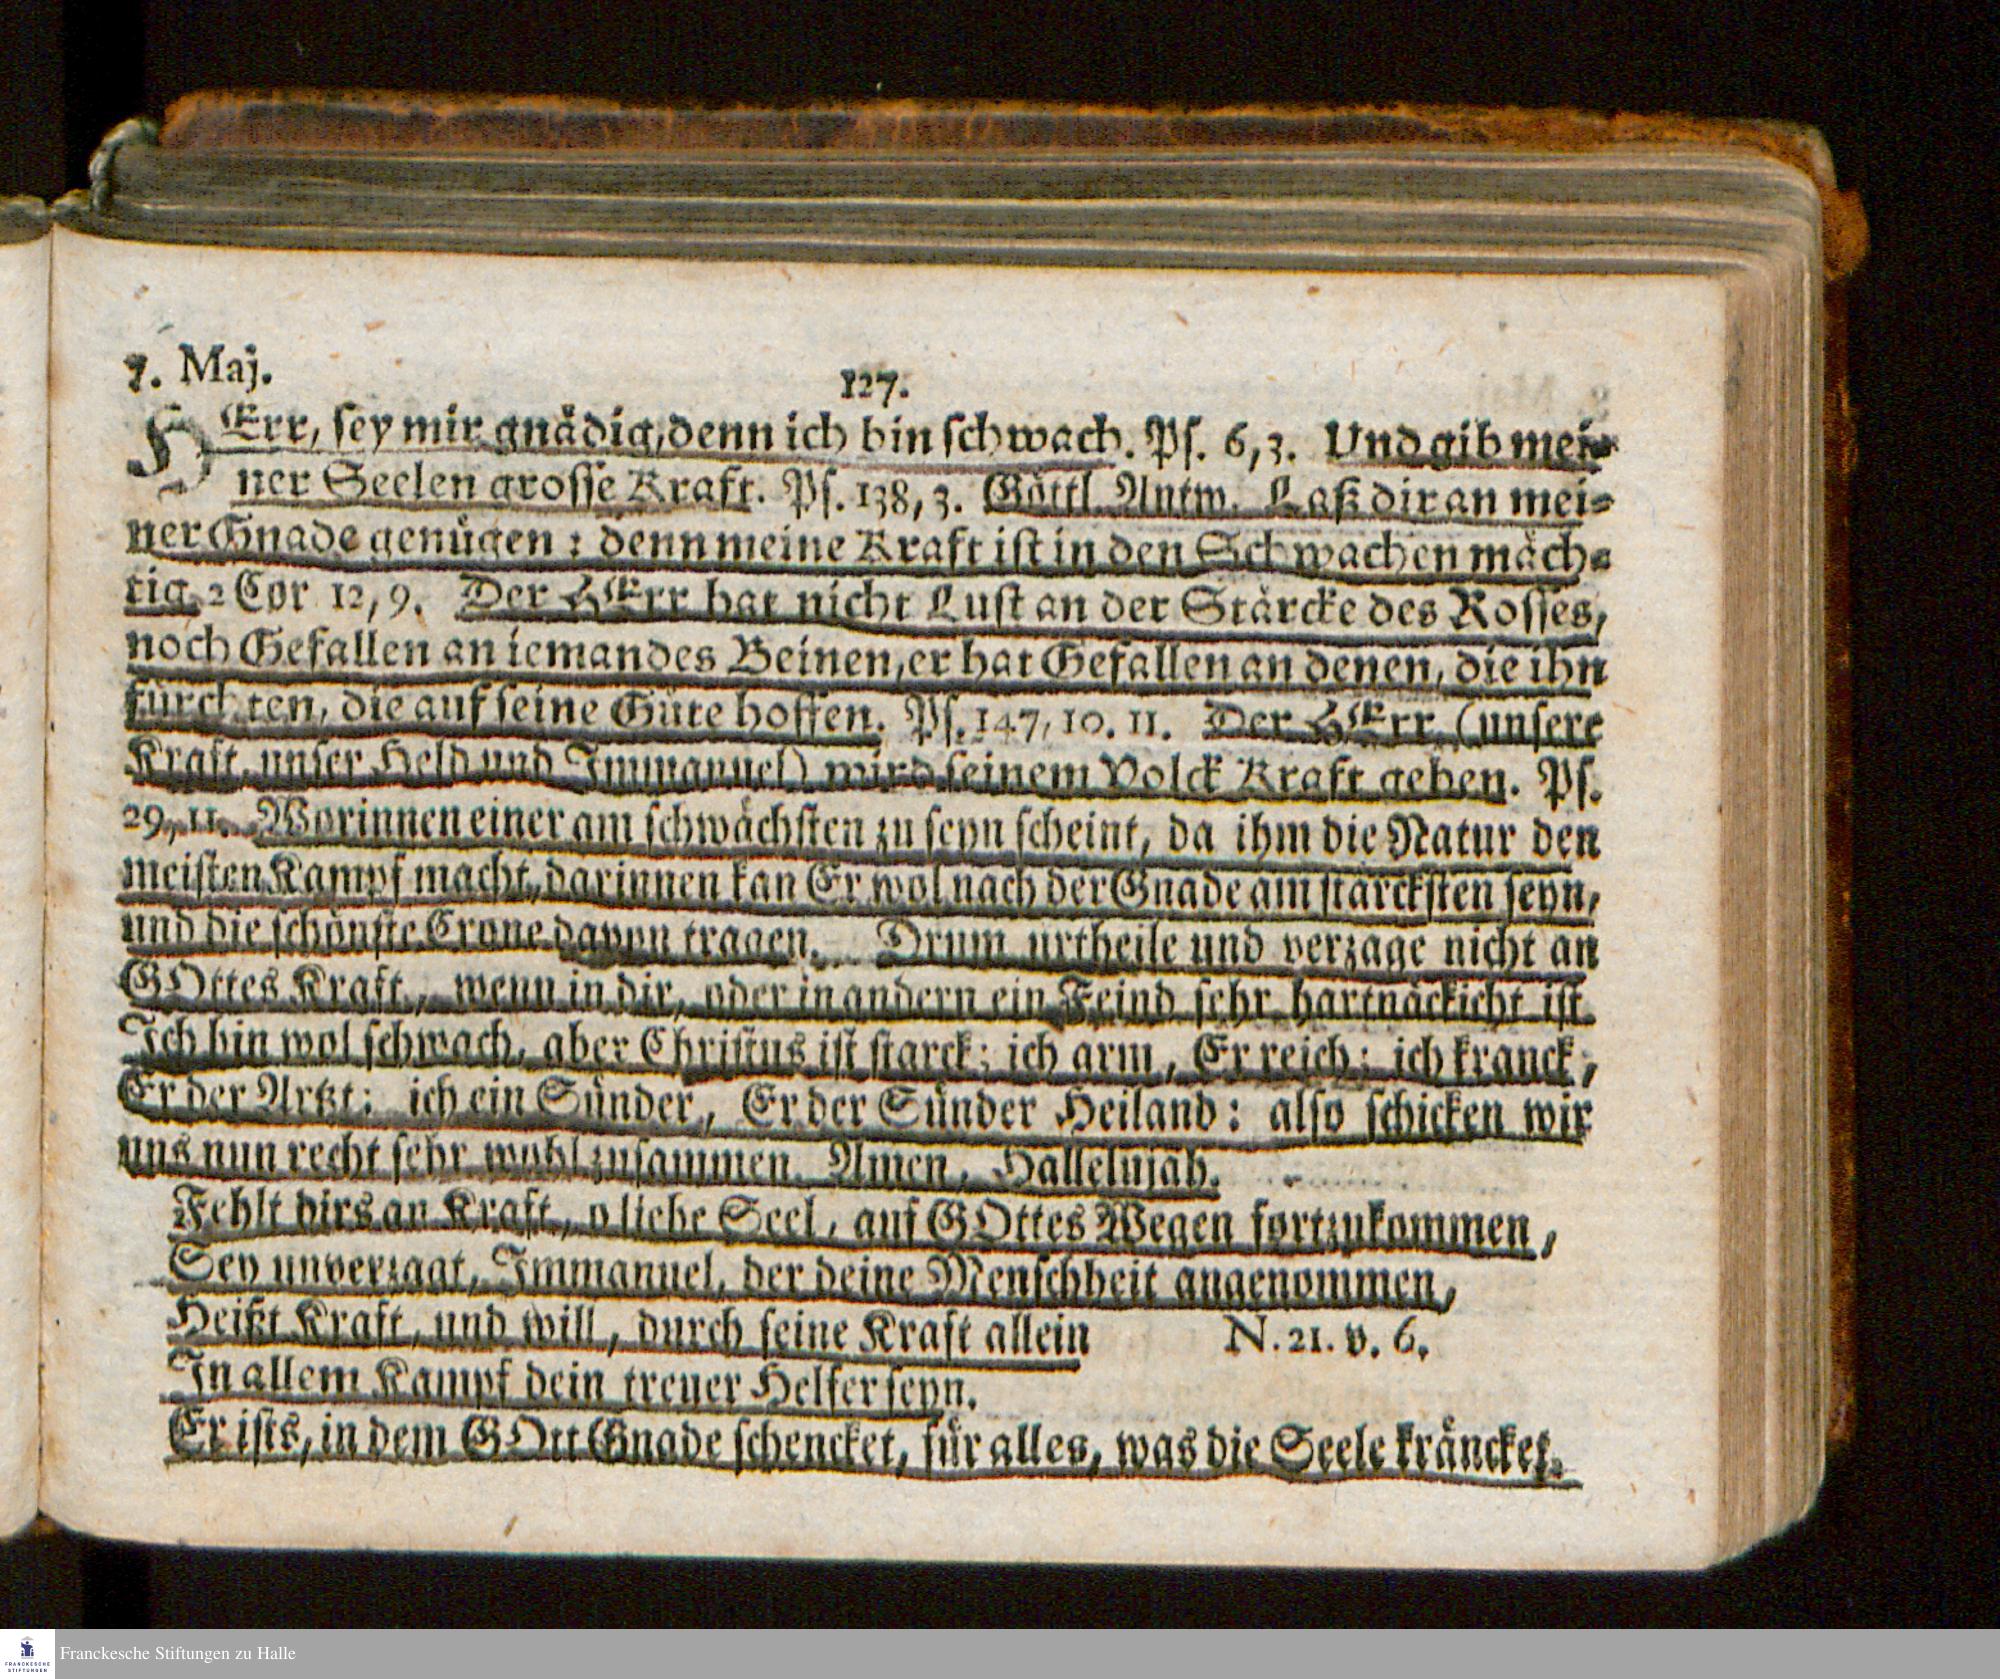 7. Maj.
127.
HErr, sey mir gnädig, denn ich bin schwach. Ps. 6, 3. Und gib mei-
ner Seelen grosse Kraft. Ps. 138, 3. Göttl. Antw. Laß dir an mei-
ner Gnade genügen: denn meine Kraft ist in den Schwachen mäch-
tig. 2 Cor 12, 9. Der HErr hat nicht Lust an der Stärcke des Rosses,
noch Gefallen an iemandes Beinen, er hat Gefallen an denen, die ihn
fürchten, die auf seine Güte hoffen. Ps. 147, 10. 11. Der HErr (unsere
Kraft, unser Held und Immanuel) wird seinem Volck Kraft geben. Ps.
29, 11. Worinnen einer am schwächsten zu seyn scheint, da ihm die Natur den
meisten Kampf macht, darinnen kan Er wol nach der Gnade am stärcksten seyn,
und die schönste Crone davon tragen. Drum urtheile und verzage nicht an
GOttes Kraft, wenn in dir, oder in andern ein Feind sehr hartnäckicht ist.
Ich bin wol schwach, aber Christus ist starck; ich arm, Er reich; ich kranck,
Er der Artzt; ich ein Sünder, Er der Sünder Heiland: also schicken wir
uns nun recht sehr wohl zusammen. Amen, Hallelujah.
Fehlt dirs an Kraft, o liebe Seel, auf GOttes Wegen fortzukommen,
Sey unverzagt, Immanuel, der deine Menschheit angenommen,
Heißt Kraft, und will, durch seine Kraft allein N. 21. v. 6.
In allem Kampf dein treuer Helfer seyn.
Er ists, in dem GOtt Gnade schencket, für alles, was die Seele kräncket.
Franckesche Stiftungen zu Halle
FRANCKESCHE
STIFTUNGEN